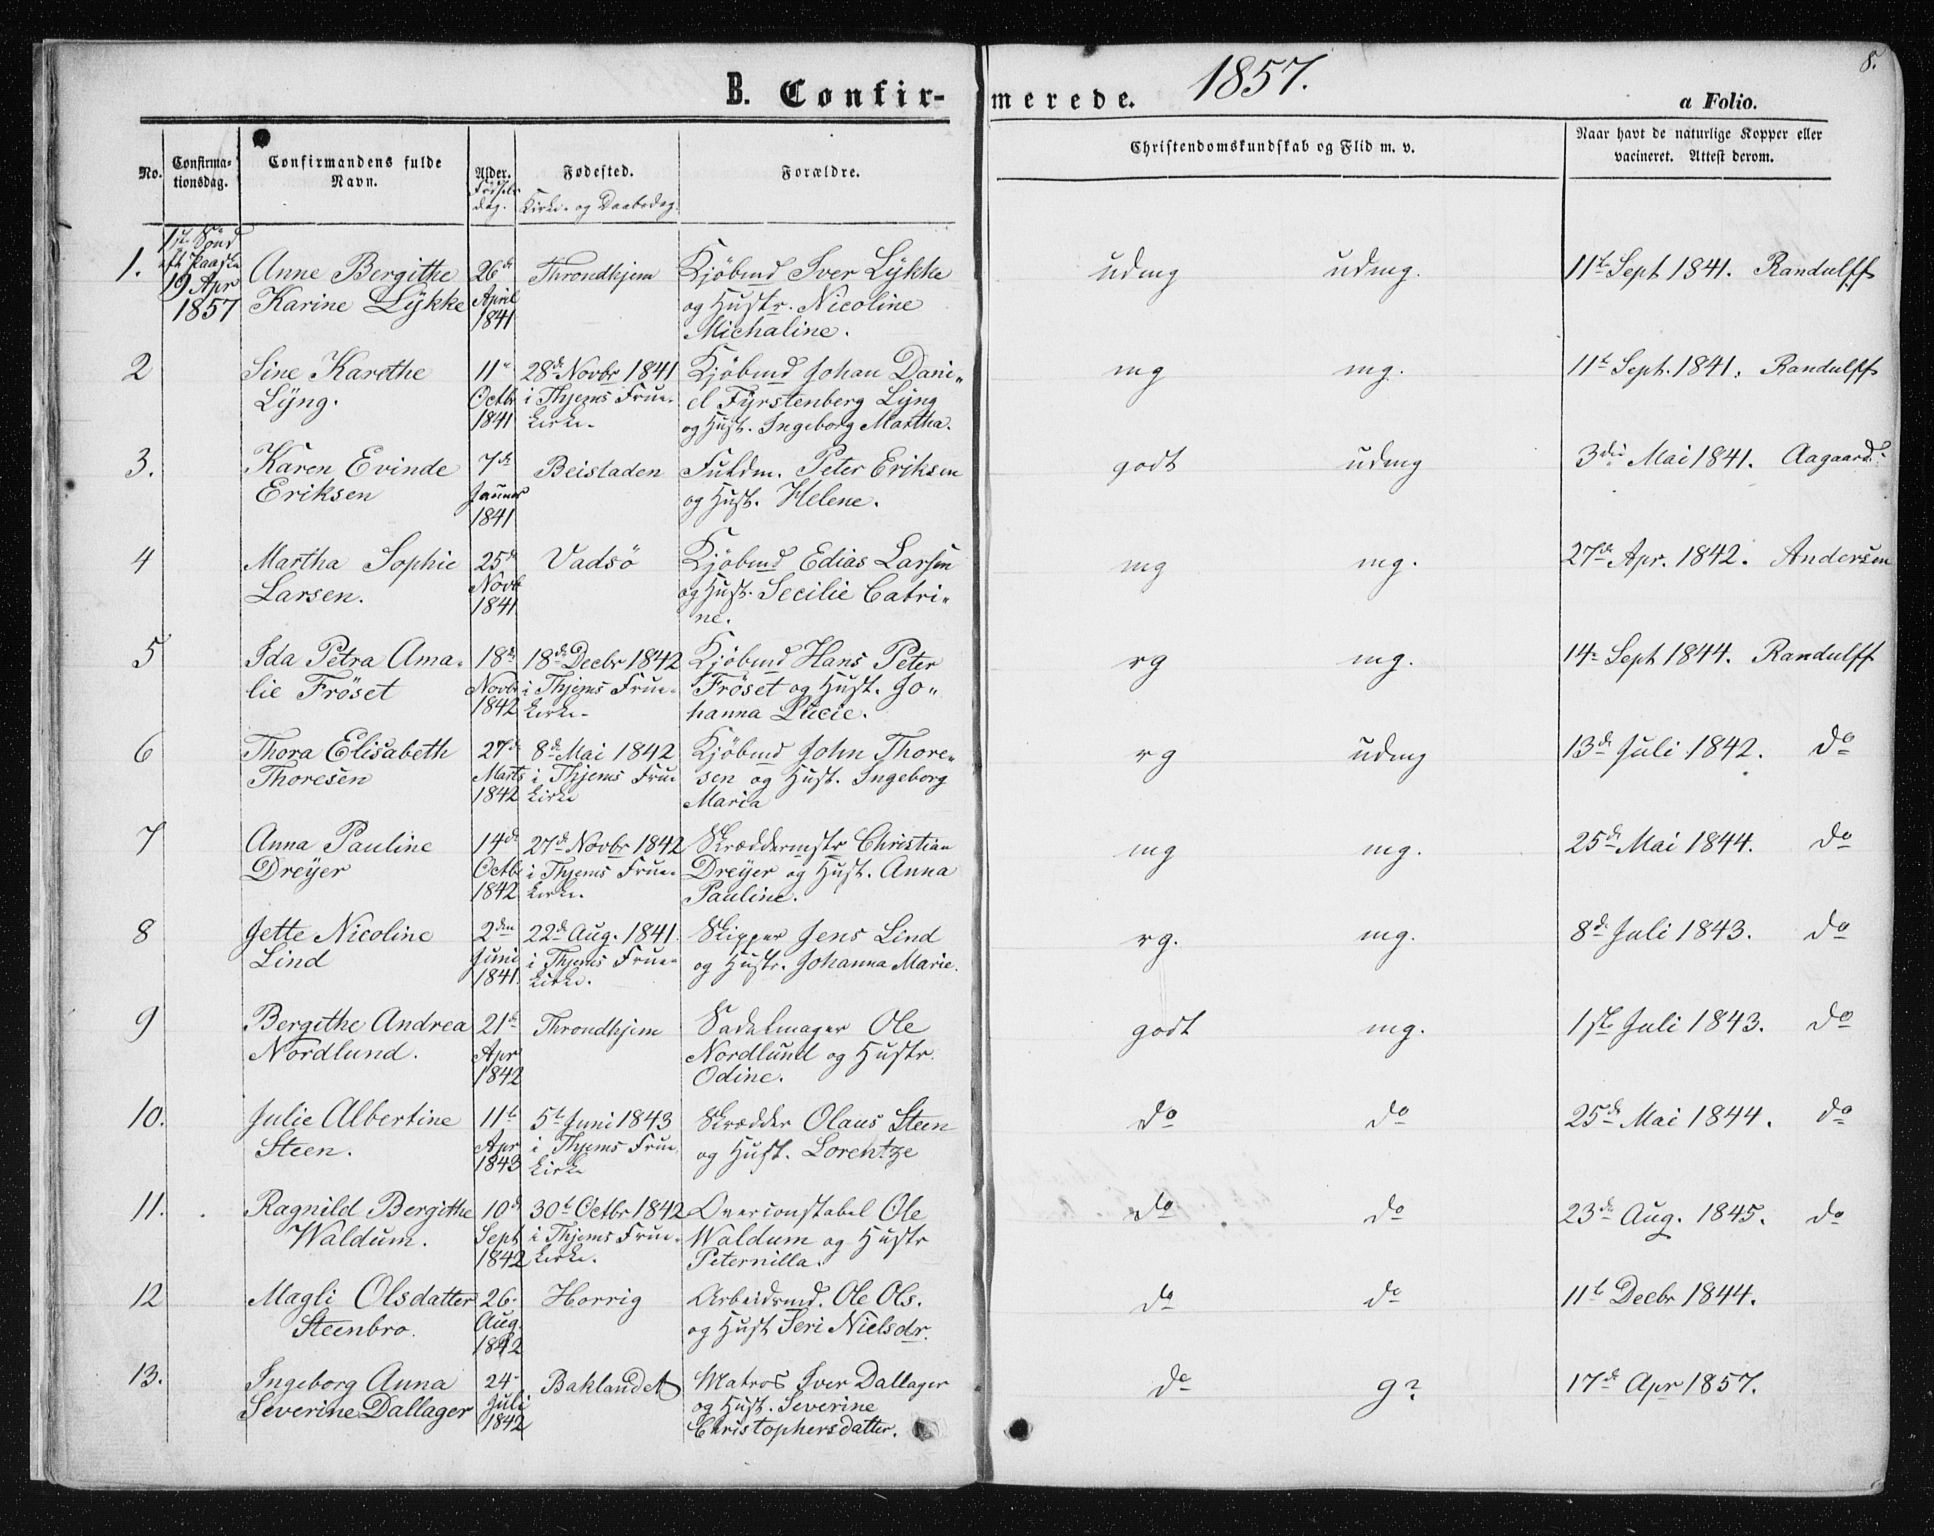 8.
B. Confir-
merede. 1857.
a Folio.
No.
Confirma-
tionsdag.
Confirmandens fulde
Navn.
Alder.
Fødsels
dag.
Fødested.
Kirke- og Daabsdag.
Forældre.
Christendomskundskab og Flid m. v.
Naar havt de naturlige Kopper eller
vacineret. Attest derom.
1.
1ste Sönd
eft Paaske
19 Apr
1857
Anne Bergithe
Karine Lÿkke
26de
April
1841
Throndhjem
Kjöbmd Iver Lÿkke
og Hustr. Nicoline
Michaline.
udmg
udmg.
11te Sept 1841. Randulff
2
Sine Karethe
Lÿng.
11te
Octbr
1841
28de Novbr 1841
i Thjems Frue-
kirke.
Kjöbmd Johan Dani„
el Fÿrstenberg Lÿng
og Hust. Ingeborg Martha.
mg
mg.
11te Sept. 1841. Randulff
3.
Karen Evinde
Eriksen
7de
Januar
1841
Beistaden
Fuldm. Peter Eriksen
og Hust. Helene.
godt
udmg
3die Mai 1841. Aagaard.
4
Martha Sophie
Larsen.
25de
Novb
1841
Vadsö
Kjöbmd Edias Larsen
og Hust. Secilie Catri„
ne.
mg
mg.
27de Apr. 1842. Andersen
5
Ida Petra Ama-
lie Fröset
18de
Novbr
1842
18de Decbr 1842
i Thjems Frue-
kirke.
Kjöbmd Hans Peter
Fröset og Hust. Jo„
hanna Lucie.
rg
mg.
14- Sept 1844. Randulff
6
Thora Elisabeth
Thoresen
27de
Marts
1842
8de Mai 1842
i Thjems Frue
kirke
Kjöbmd John Thore„
sen og Hust. Ingeborg
Maria
rg
udmg
13de Juli 1842. do
7
Anna Pauline
Dreÿer
14de
Octb
1842
27de Novbr 1842
i Thjems Frue-
kirke.
Skræddermstr Christian
Dreÿer og Hust. Anna
Pauline.
mg
mg.
25de Mai 1844. do
8
Jette Nicoline
Lind
2den
Juni
1841.
22de Aug. 1841.
i Thjems Frue-
kirke.
Skipper Jens Lind
og Hustr. Johanna Marie.
rg.
mg.
8de Juli 1843. do
9
Bergithe Andrea
Nordlund.
21de
Apr
1842
Throndhjem
Sadelmager Ole
Nordlund og Hustr.
Odine.
godt
mg.
1ste Juli 1843. do
10.
Julie Albertine
Steen.
11te
Apr
1843
5te Juni 1843
i Thjems Frue
kirke
Skrædder Olaus Steen
og Hust. Lorentze
do
do
25de Mai 1844. do
11.
Ragnild Bergithe
Waldum.
10de
Sept
1842
30te Octbr 1842
i Thjems Frue-
kirke.
Overconstabel Ole
Waldum og Hustr
Peternilla.
do
do
23de Aug. 1845. do
12
Magli Olsdatter
Steenbro.
26-
Aug.
1842
Horrig
Arbeidsmd. Ole Ols.
og Hust Seri Nielsdr.
do
do
11te Decbr 1844.
13.
Ingeborg Anna
Severine Dallager
24-
Juli
1842
Baklandet
Matros Iver Dallager
og Hust. Severine
Christophersdatter.
do
g?
17de Apr 1857.